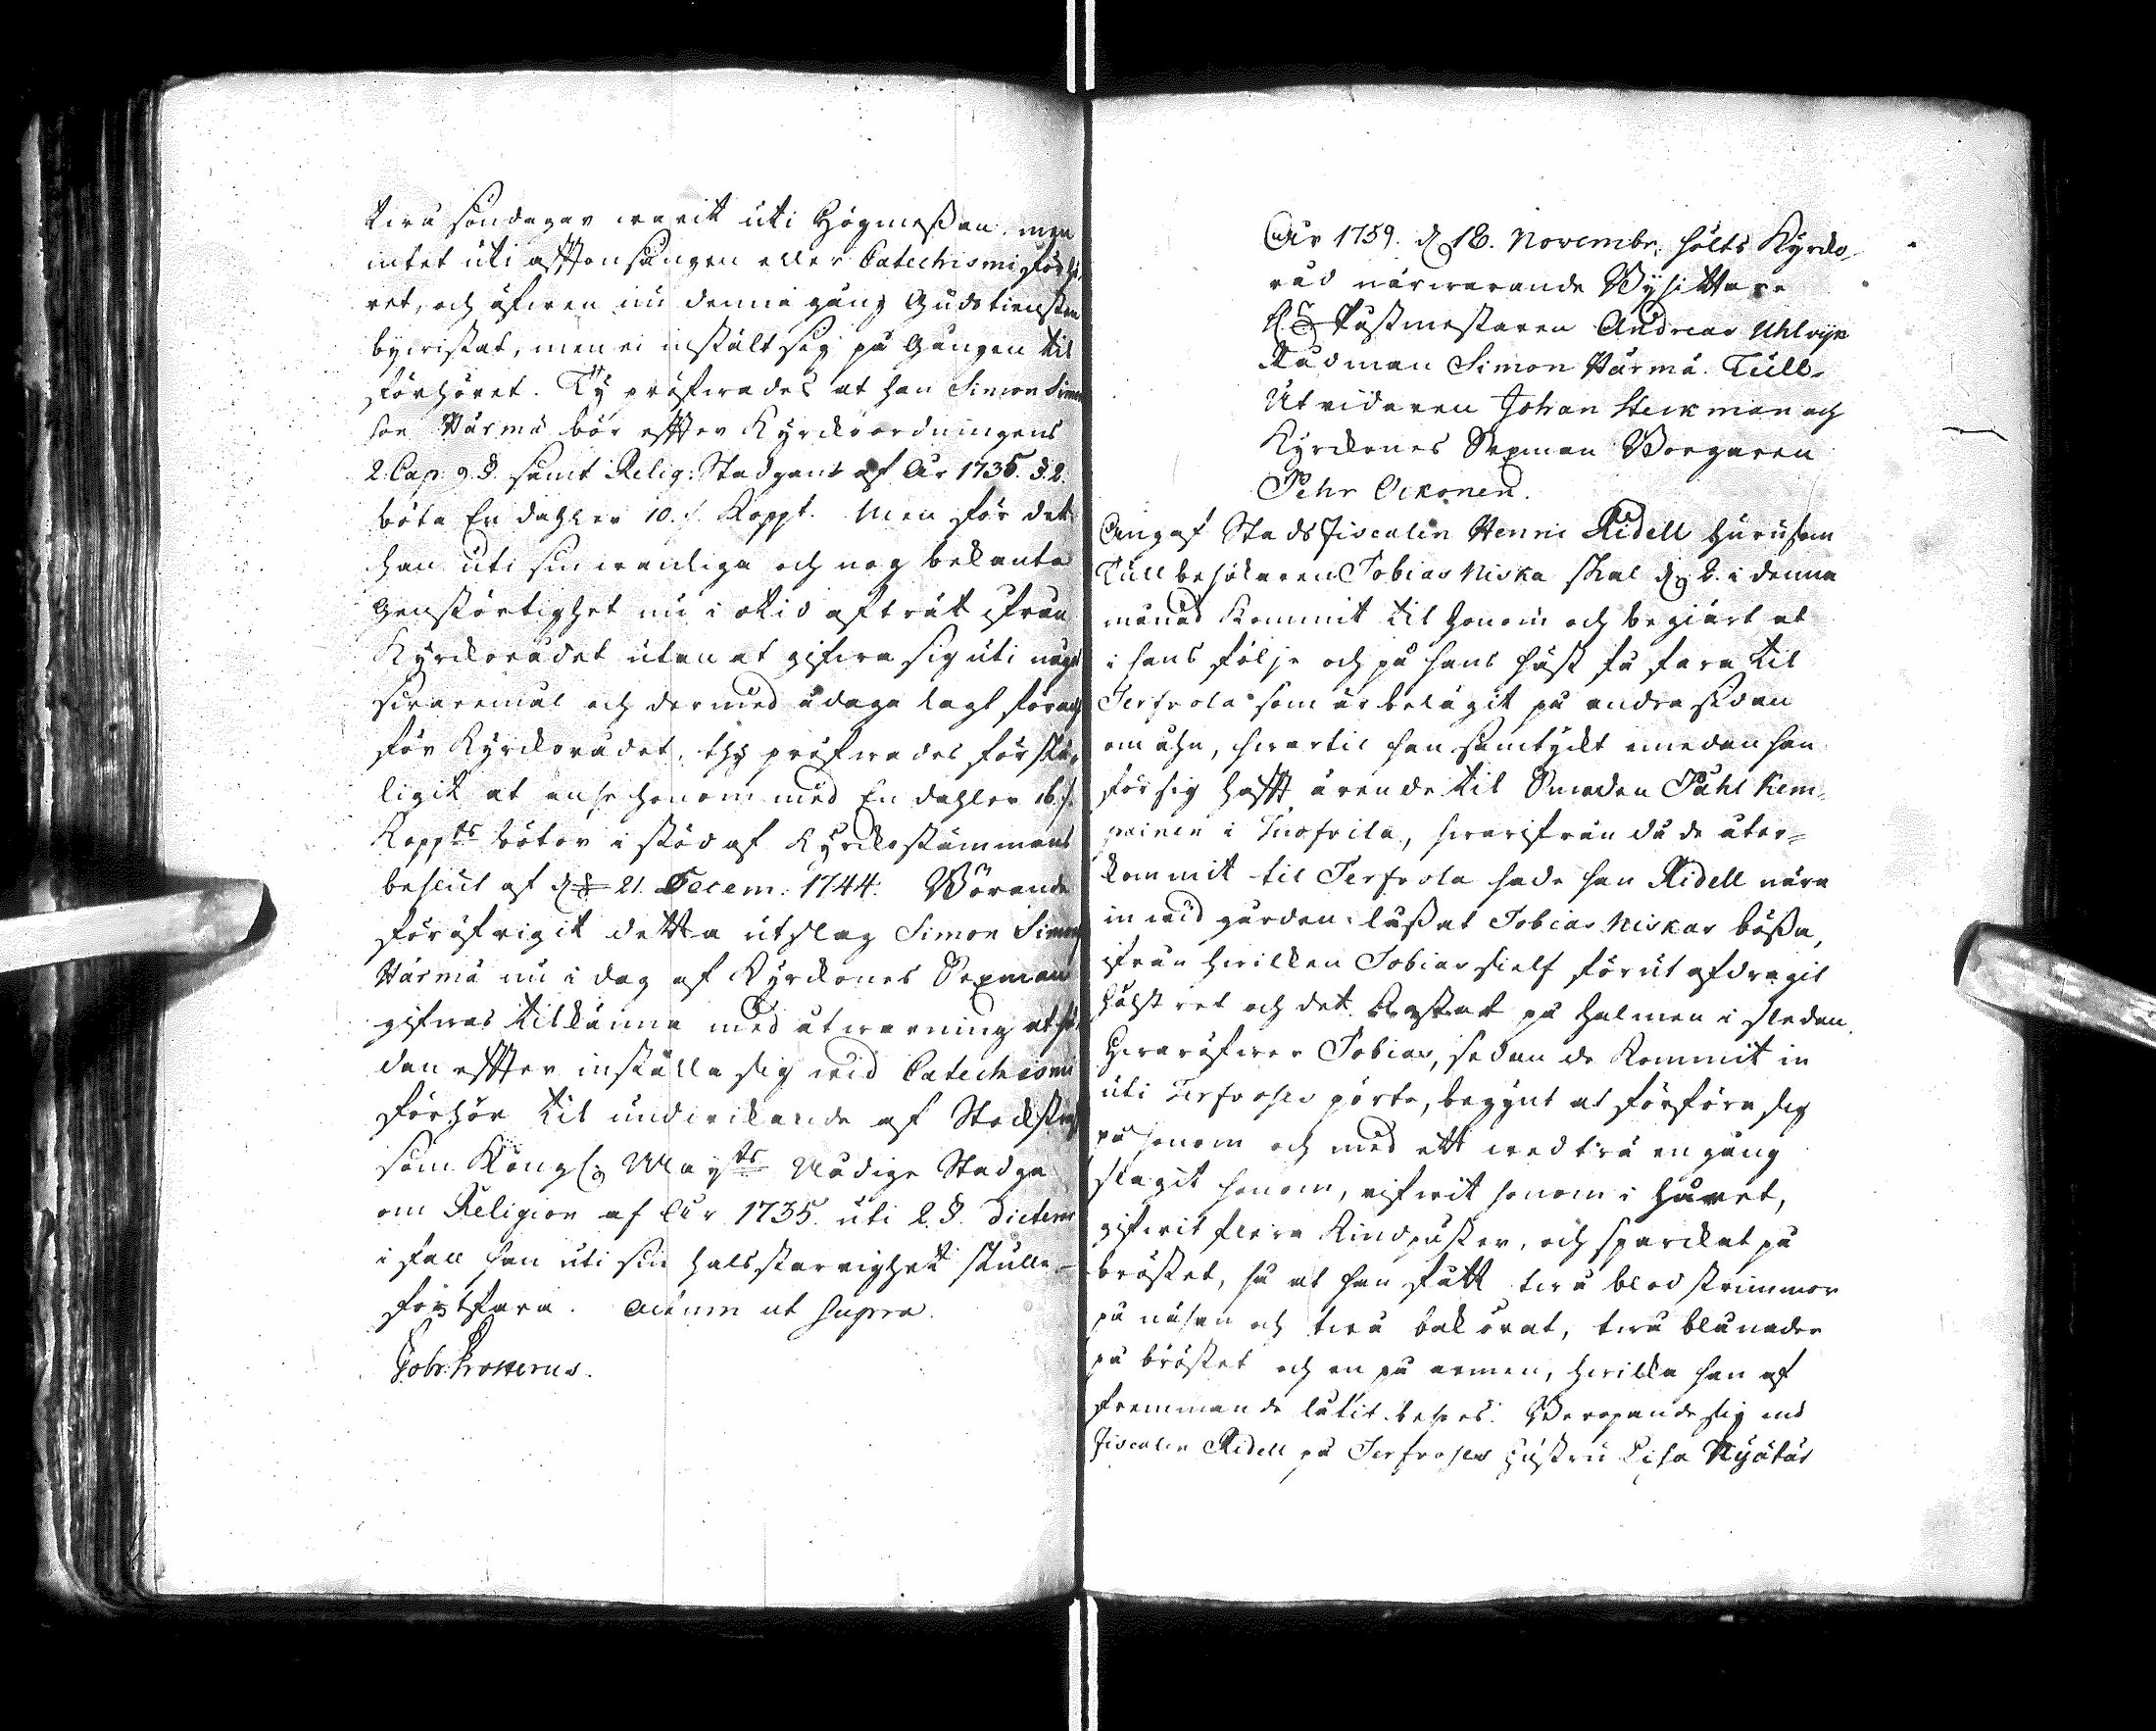 twå söndagar warit uti Högmeßan, men
intet uti afftonsången eller Catechismi förhö-
ret, och äfwen nu denna gång Gudstiensten
bywistat, men ei instält sig på Gången til
förhöret. Ty pröfwades at han Simon Simon
son Värmä bör effter Kyrckoordningens
2. Cap. 9. §. samt Relig: Stadgans af År 1735. §. 2.
böta En dahler 10. s. Koppt. Men för det
han uti sin wanliga och nog bekanta
Genstörtighet nu i otid afträt ifrån
Kyrckorådet utan at gifwa sig uti någ
swaremål och dermed ådaga lagt förackt
för Kyrckorådet, thy pröfwades förskä-
ligit at anse honom med En dahler 16. s.
Koppts böter i stöd af Kyrckostämmans
beslut af d. 21. Decem. 1744. Wörande
föröfrigit detta utslag Simon Simons
Värmä nu i dag af Kyrckones Sexman
gifwas tilkänna med åtwarning at sä-
dan effter inställa sig wid Catechismi
förhör til undwikande af Stockstraff
som Kongl. Mayts Nådige Stadga
om Religion af År 1735. uti 2. §. dicterar
i fall han uti sin halsstarrighet skulle
fortfara. Actum ut supra.
Gabr: Prosterus.
År 1759. d. 18. Novembr. hölts Kyrcko-
råd närwarande Bysittare
H. Postmestaren Andreas Uhlwijk
Rådman Simon Värmä. Tull-
Utridaren Johan Steckman och
Kyrckones Sexman Borgaren
Pehr Oikonen.
Angaf Stads Fiscalen Henric Ridell hurusom
Tullbesökaren Tobias Niska skal d. 2. i denna
månad kommit til honom och begiärt at
i hans följe och på hans häst få fara til
Terfvola som är belägit på andra sidan
om åhn, hwartil han samtyckt emedan han
för sig hafft ärende til Smeden Påhl Kem-
painen i Tuofvila, hwarifrån då de åter-
kommit til Terfvola hade han Ridell nära
in wid gården lußat Tobias Niskas bößa,
ifrån hwilcken Tobias sielf förut afdragit
hölstret och det kastat på halmen i sleden.
Hwaröfwer Tobias, sedan de kommit in
uti Terfvoses pörte, begynt at förföra sig
på honom och med ett wedträ en gång
slagit honom, rifwit honom i håret,
gifwit flera Kindpuster, och sparckat på
bröstet, så at han fått twå blod strimmor
på näsan och twå bak örat, twå blånader
på bröstet och en på armen, hwilcka han af
fremmande låtit bese. Beropande sig nu
Fiscalen Ridell på Terfvoses hustru Lisa Nyätär